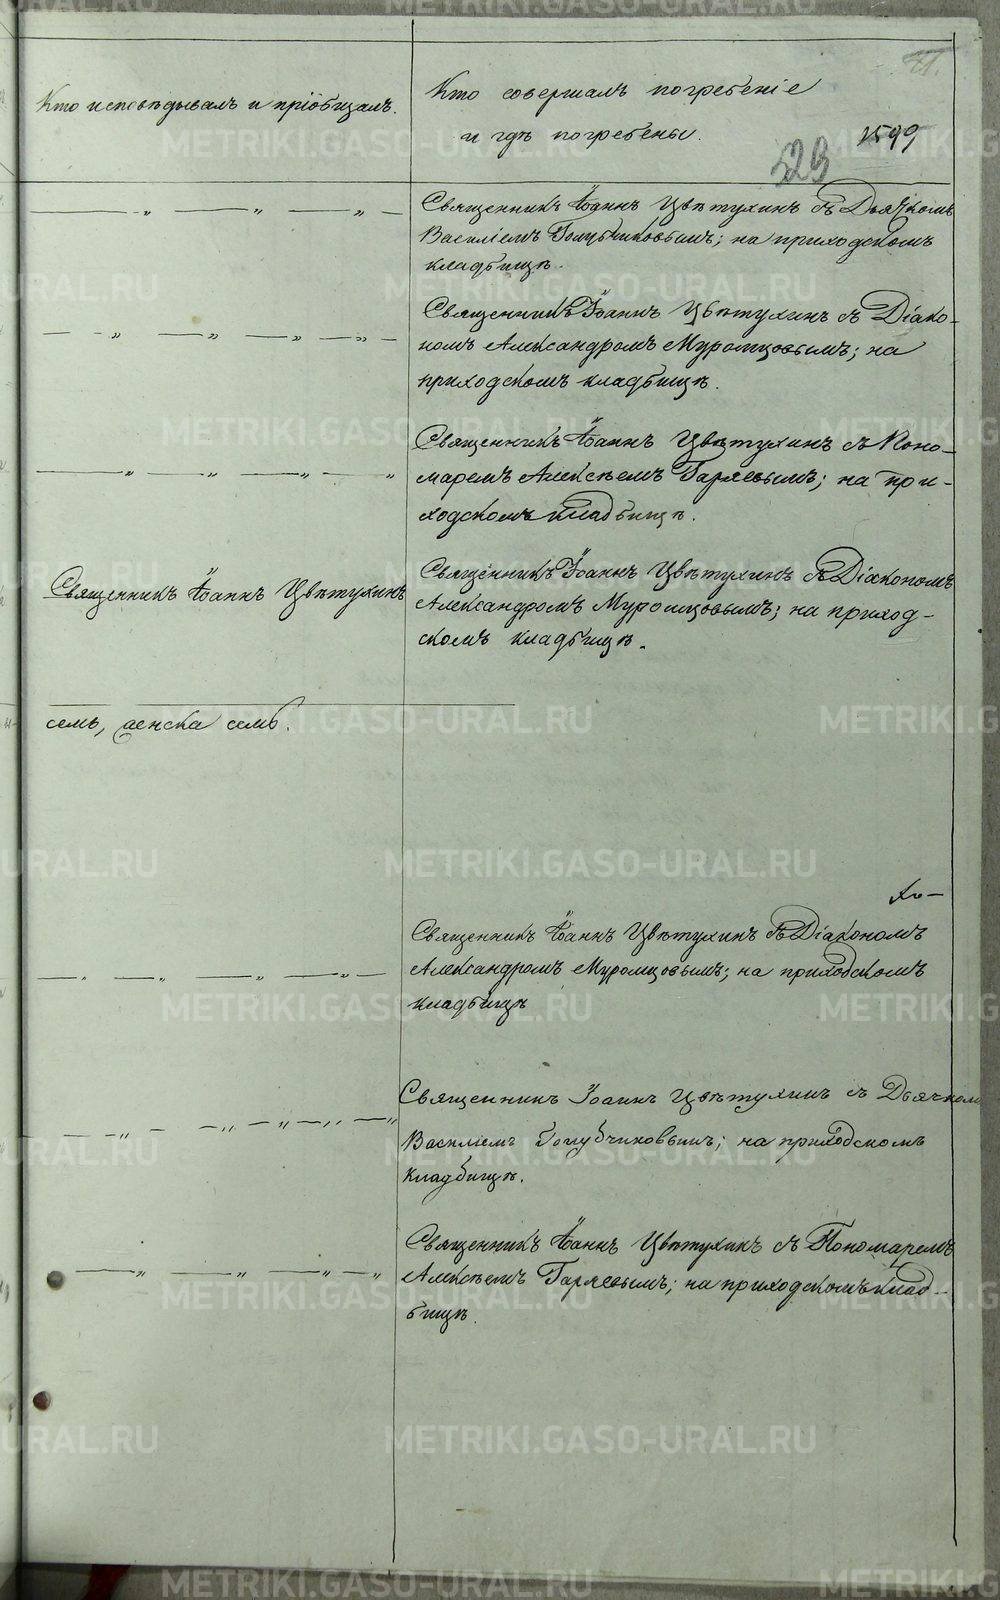 71.
Кто исповѣдывалъ и пріобщалъ.
Кто совершалъ погребеніе
и гдѣ погребены.
1599
529
Священникъ Іоаннъ Цвѣтухинъ съ Дьячкомъ
Василіемъ Голубчиковымъ; на приходскомъ
кладбищѣ.
Священникъ Іоаннъ Цвѣтухинъ съ Діако-
номъ Александромъ Муромцовымъ; на
приходскомъ кладбищѣ.
Священникъ Іоаннъ Цвѣтухинъ съ Поно-
маремъ Алексѣемъ Гаряевымъ; на при-
ходскомъ кладбищѣ.
Священникъ Іоаннъ Цвѣтухинъ
Священникъ Іоаннъ Цвѣтухинъ съ Діакономъ
Александромъ Муромцовымъ; на приход-
скомъ кладбищѣ.
семь, женска семь.
Священникъ Іоаннъ Цвѣтухинъ съ Діакономъ
Александромъ Муромцовымъ; на приходскомъ
кладбищѣ
Священникъ Іоаннъ Цвѣтухинъ съ Дьячкомъ
Василіемъ Голубчиковымъ; на приходскомъ
кладбищѣ.
Священникъ Іоаннъ Цвѣтухинъ съ Пономаремъ
Алексѣемъ Гаряевымъ; на приходскомъ клад-
бищѣ.
METRIKI.GASO-URAL.RU